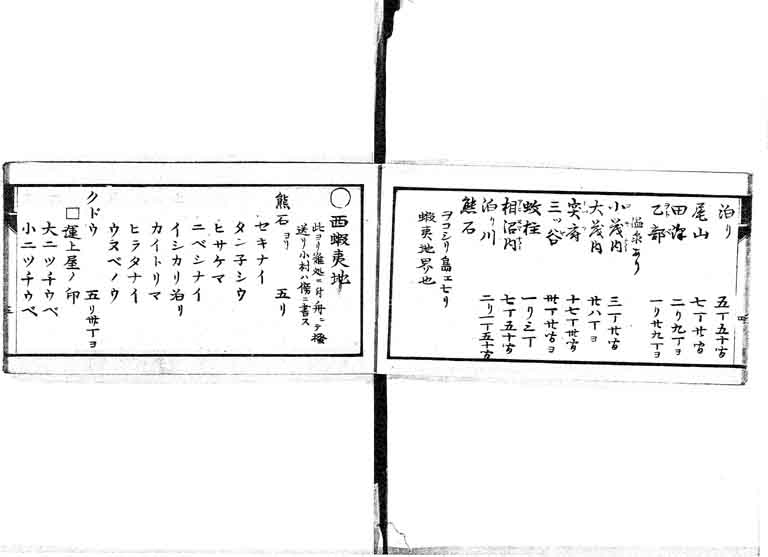 泊り 五丁五十六間
尾山 七丁廿間
田澤 二り九丁ヨ
乙部 一り廿九丁ヨ
温泉あり
小茂内 三丁廿間
大茂内 廿八丁ヨ
突府 十七丁廿間
三ッ谷 卅丁廿間ヨ
蚊柱 一り三丁
相沼内 七丁五十間
泊り川 二り二丁五十間
熊石
ヲコシリ島エ七り
蝦夷地界也
○西蝦夷地
此ヨリ難処ニ付舟ニテ
送リ小村ハ傍ニ書ス
熊石ヨリ 五リ
セキナイ
タン子シウ
ヒサケマ
ニベシナイ
イシカリ泊リ
カイトリマ
ヒラタナイ
ウスベノウ
クドウ 五リ卅丁ヨ
□運上屋ノ印
大ニツチウベ
小ニツチウベ